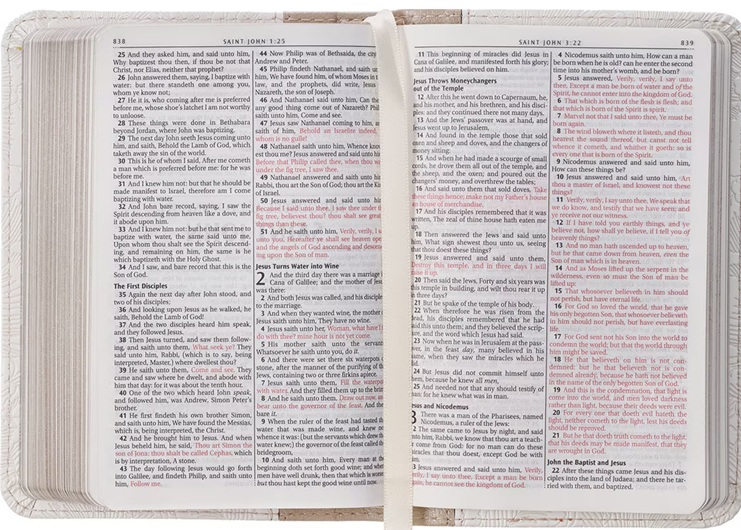 838 SAINT JOHN 1:25
25 And they asked him, and said unto him,
Why baptizest thou then, if thou be not that
Christ, nor Elias, neither that prophet?
26 John answered them, saying, I baptize with
water: but there standeth one among you,
whom ye know not;
27 He it is, who coming after me is preferred
before me, whose shoe's latchet I am not worthy
to unloose.
28 These things were done in Bethabara
beyond Jordan, where John was baptizing.
29 The next day John seeth Jesus coming unto
him, and saith, Behold the Lamb of God, which
taketh away the sin of the world.
30 This is he of whom I said, After me cometh
a man which is preferred before me: for he was
before me.
31 And I knew him not: but that he should be
made manifest to Israel, therefore am I come
baptizing with water.
32 And John bare record, saying, I saw the
Spirit descending from heaven like a dove, and
it abode upon him.
33 And I knew him not: but he that sent me to
baptize with water, the same said unto me,
Upon whom thou shalt see the Spirit descend-
ing, and remaining on him, the same is he
which baptizeth with the Holy Ghost.
34 And I saw, and bare record that this is the
Son of God.
The First Disciples
35 Again the next day after John stood, and
two of his disciples;
36 And looking upon Jesus as he walked, he
saith, Behold the Lamb of God!
37 And the two disciples heard him speak,
and they followed Jesus.
38 Then Jesus turned, and saw them follow-
ing, and saith unto them, What seek ye? They
said unto him, Rabbi, (which is to say, being
interpreted, Master,) where dwellest thou?
39 He saith unto them, Come and see. They
came and saw where he dwelt, and abode with
him that day: for it was about the tenth hour.
40 One of the two which heard John speak,
and followed him, was Andrew, Simon Peter's
brother.
41 He first findeth his own brother Simon,
and saith unto him, We have found the Messias,
which is, being interpreted, the Christ.
42 And he brought him to Jesus. And when
Jesus beheld him, he said, Thou art Simon the
son of Jona: thou shalt be called Cephas, which
is by interpretation, A stone.
43 The day following Jesus would go forth
into Galilee, and findeth Philip, and saith unto
him, Follow me.
44 Now Philip was of Bethsaida, the city
Andrew and Peter.
45 Philip findeth Nathanael, and saith un
him, We have found him, of whom Moses in t
law, and the prophets, did write, Jesus
Nazareth, the son of Joseph.
46 And Nathanael said unto him, Can the
any good thing come out of Nazareth? Phil
saith unto him, Come and see.
47 Jesus saw Nathanael coming to him, a
saith of him, Behold an Israelite indeed,
whom is no guile!
48 Nathanael saith unto him, Whence know
est thou me? Jesus answered and said unto hi
Before that Philip called thee, when thou wa
under the fig tree, I saw thee.
49 Nathanael answered and saith unto hi
Rabbi, thou art the Son of God; thou art the Ki
of Israel.
50 Jesus answered and said unto hi
Because I said unto thee, I saw thee under t
fig tree, believest thou? thou shalt see great
things than these.
51 And he saith unto him, Verily, verily, I s
unto you, Hereafter ye shall see heaven ope
and the angels of God ascending and descen
ing upon the Son of man.
Jesus Turns Water into Wine
2 And the third day there was a marriage i
Cana of Galilee; and the mother of Jesu
was there:
2 And both Jesus was called, and his disciple
to the marriage.
3 And when they wanted wine, the mother
Jesus saith unto him, They have no wine.
4 Jesus saith unto her, Woman, what have I
do with thee? mine hour is not yet come.
5 His mother saith unto the servant
Whatsoever he saith unto you, do it.
6 And there were set there six waterpots o
stone, after the manner of the purifying of th
Jews, containing two or three firkins apiece.
7 Jesus saith unto them, Fill the waterpo
with water. And they filled them up to the bri
8 And he saith unto them, Draw out now, an
bear unto the governor of the feast. And the
bare it.
9 When the ruler of the feast had tasted th
water that was made wine, and knew no
whence it was: (but the servants which drew th
water knew;) the governor of the feast called th
bridegroom,
10 And saith unto him, Every man at th
beginning doth set forth good wine; and whe
men have well drunk, then that which is worse
but thou hast kept the good wine until now.
SAINT JOHN 3:22 839
11 This beginning of miracles did Jesus in
Cana of Galilee, and manifested forth his glory;
and his disciples believed on him.
Jesus Throws Moneychangers
out of the Temple
12 After this he went down to Capernaum, he,
and his mother, and his brethren, and his disci-
ples: and they continued there not many days.
13 And the Jews' passover was at hand, and
Jesus went up to Jerusalem,
14 And found in the temple those that sold
oxen and sheep and doves, and the changers of
money sitting:
15 And when he had made a scourge of small
cords, he drove them all out of the temple, and
the sheep, and the oxen; and poured out the
changers' money, and overthrew the tables;
16 And said unto them that sold doves, Take
these things hence; make not my Father's house
an house of merchandise.
17 And his disciples remembered that it was
written, The zeal of thine house hath eaten me
up.
18 Then answered the Jews and said unto
him, What sign shewest thou unto us, seeing
that thou doest these things?
19 Jesus answered and said unto them,
Destroy this temple, and in three days I will
raise it up.
20 Then said the Jews, Forty and six years was
this temple in building, and wilt thou rear it up
in three days?
21 But he spake of the temple of his body.
22 When therefore he was risen from the
dead, his disciples remembered that he had
said this unto them; and they believed the scrip-
ture, and the word which Jesus had said.
23 Now when he was in Jerusalem at the pass-
over, in the feast day, many believed in his
name, when they saw the miracles which he
did.
24 But Jesus did not commit himself unto
them, because he knew all men,
25 And needed not that any should testify of
man: for he knew what was in man.
Jesus and Nicodemus
3 There was a man of the Pharisees, named
Nicodemus, a ruler of the Jews:
2 The same came to Jesus by night, and said
unto him, Rabbi, we know that thou art a teach-
er come from God: for no man can do these
miracles that thou doest, except God be with
3 Jesus answered and said unto him, Verily,
verily, I say unto thee, Except a man be born
again, he cannot see the kingdom of God.
4 Nicodemus saith unto him, How can a man
be born when he is old? can he enter the second
time into his mother's womb, and be born?
5 Jesus answered, Verily, verily, I say unto
thee, Except a man be born of water and of the
Spirit, he cannot enter into the kingdom of God.
6 That which is born of the flesh is flesh; and
that which is born of the Spirit is spirit.
7 Marvel not that I said unto thee, Ye must be
born again.
8 The wind bloweth where it listeth, and thou
hearest the sound thereof, but canst not tell
whence it cometh, and whither it goeth: so is
every one that is born of the Spirit.
9 Nicodemus answered and said unto him,
How can these things be?
10 Jesus answered and said unto him, Art
thou a master of Israel, and knowest not these
things?
11 Verily, verily, I say unto thee, We speak that
we do know, and testify that we have seen; and
ye receive not our witness.
12 If I have told you earthly things, and ye
believe not, how shall ye believe, if I tell you of
heavenly things?
13 And no man hath ascended up to heaven,
but he that came down from heaven, even the
Son of man which is in heaven.
14 And as Moses lifted up the serpent in the
wilderness, even so must the Son of man be
lifted up:
15 That whosoever believeth in him should
not perish, but have eternal life.
16 For God so loved the world, that he gave
his only begotten Son, that whosoever believeth
in him should not perish, but have everlasting
life.
17 For God sent not his Son into the world to
condemn the world; but that the world through
him might be saved.
18 He that believeth on him is not con-
demned: but he that believeth not is con-
demned already, because he hath not believed
in the name of the only begotten Son of God.
19 And this is the condemnation, that light is
come into the world, and men loved darkness
rather than light, because their deeds were evil.
20 For every one that doeth evil hateth the
light, neither cometh to the light, lest his deeds
should be reproved.
21 But he that doeth truth cometh to the light,
that his deeds may be made manifest, that they
are wrought in God.
John the Baptist and Jesus
22 After these things came Jesus and his dis-
ciples into the land of Judaea; and there he tar-
ried with them, and baptized.